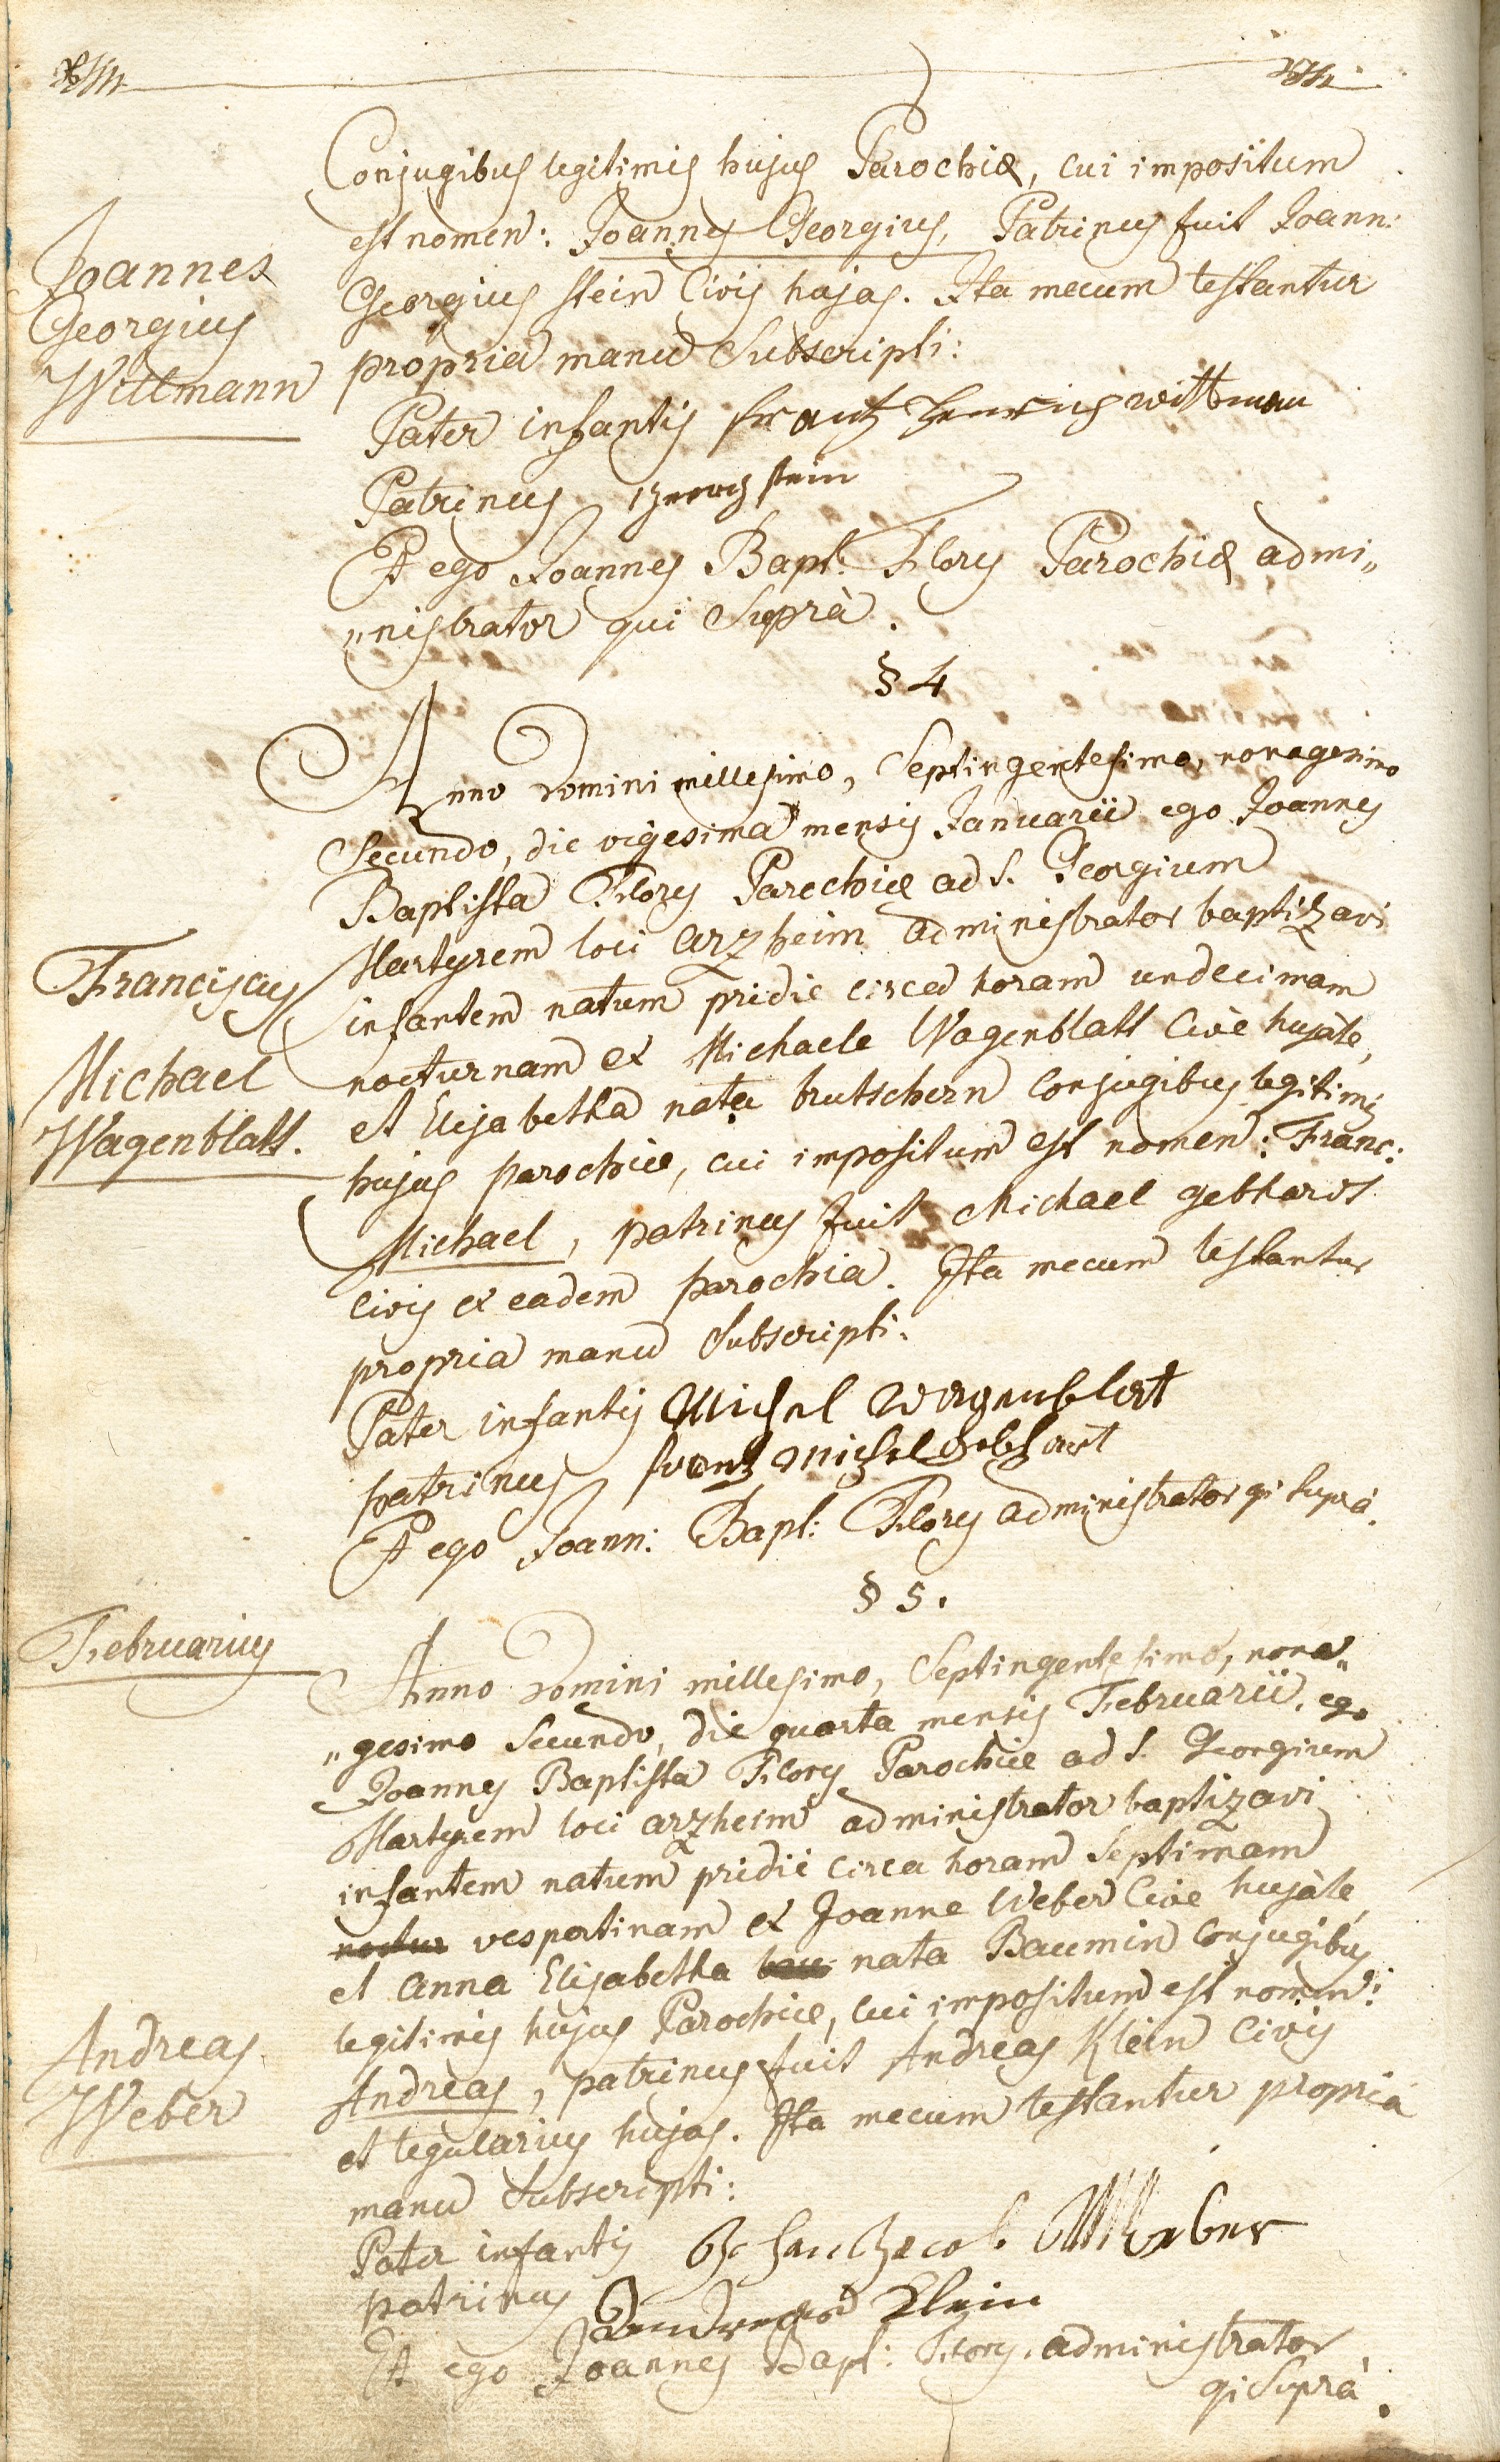 Conjugibus legitimis hujus Parochiæ, cui impositum
est nomen: Joannes Georgius, Patrinus fuit Joann:
Joannes
Georgius
Wittmann
Georgius Stein Civis hujas. Ita mecum testantur
propria manu Subscripti:
Pater infantis frantz Henrich wittman
Patrinus Georg stein
Et ego Joannes Bapt: Flory Parochiæ admi„
„nistrator qui Suprà.
§ 4
Anno Domini millesimo, Septingentesimo, nonagesimo
Secundo, die vigesima mensis Januarii ego Joannes
Baptista Flory Parochiæ ad S. Georgium
Martyrem loci arzheim administrator baptizavi
Franciscus
Michael
Wagenblatt.
infantem natum pridie circa horam undecimam
nocturnam ex Michaele Wagenblatt Cive hujate,
et Elisabetha nata trutschern Conjugibus legitimis
hujus parochiæ, cui impositum est nomen: Franc:
Michael, patrinus fuit Michael gebhardt
Civis ex eadem parochia. Ita mecum testantur
propria manu Subscripti:
Pater infantis Michel Wagenblat
patrinus frantz Michel Gebhart
Et ego Joann: Bapt: Flory administrator qi Suprà.
§ 5.
Februarius
Anno Domini millesimo, Septingentesimo, nona„
„gesimo Secundo, die quarta mensis Februarii, ego
Joannes Baptista Flory Parochiæ ad S. Georgium
Martyrem loci arzheim administrator baptizavi
infantem natum pridie circa horam Septimam
noctur vespertinam ex Joanne Weber Cive hujàte,
et anna Elisabetha bau nata Baumin Conjugibus
legitimis hujus Parochiæ, cui impositum est nomen:
Andreas
Weber
Andreas, patrinus fuit Andreas Klein Civis
et tegularius hujas. Ita mecum testantur propria
manu Subscripti:
Pater infantis Johan Jacob Weber
patrinus Andreas Klein
Et ego Joannes Bapt: Flory. administrator
qi Suprà.